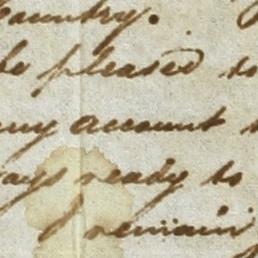 Country.
be pleased to
any account
ways ready to
I remain